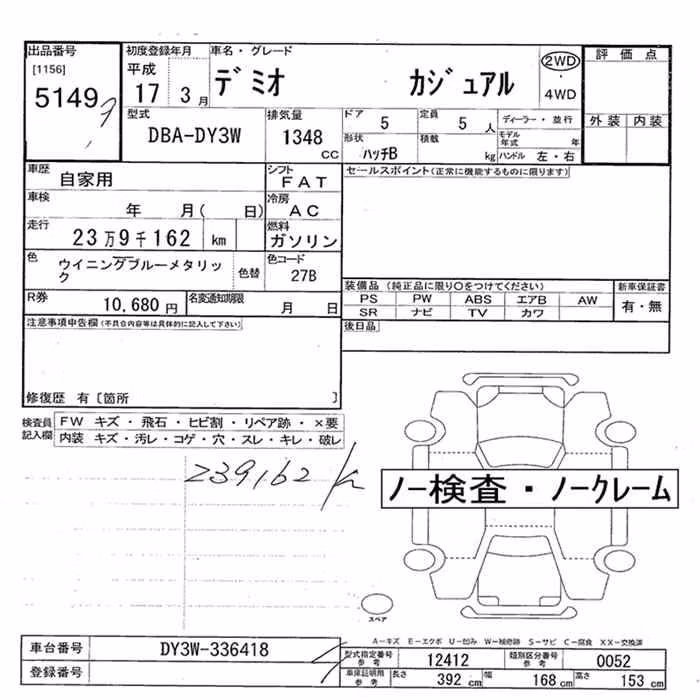 出品番号 初度登録年月 車名・グレード 2WD 評価点
[1156] 平成 デミオ カジュアル ・
5149 17 3月 4WD
型式 排気量 ドア 5 定員 5人 ディーラー・並行 外装 内装
DBA-DY3W 1348 cc 形状 ハッチB 積載 kg モデル年式 年
ハンドル 左・右
車歴 自家用 シフト FAT セールスポイント(正常に機能するものに限ります)
車検 年 月( 日) 冷房 AC
走行 23万9千162 km 燃料 ガソリン
色 ウイニングブルーメタリック 色替 色コード 27B
装備品 (純正品に限り○をつけてください) 新車保証書
R券 10,680円 名変通知期限 月 日 PS PW ABS エアB AW 有・無
SR ナビ TV カワ
注意事項申告欄(不具合内容等は具体的に記入して下さい) 後日品
修復歴 有〔箇所 〕
検査員記入欄 FW キズ・飛石・ヒビ割・リペア跡・×要
内装 キズ・汚レ・コゲ・穴・スレ・キレ・破レ
239162
ノー検査・ノークレーム
スペア
A-キズ E-エクボ U-凹み W-補修跡 S-サビ C-腐食 XX-交換済
車台番号 DY3W-336418 型式指定番号 参考 12412 類別区分番号 参考 0052
登録番号 車庫証明用 参考 長さ 392 cm 幅 168 cm 高さ 153 cm